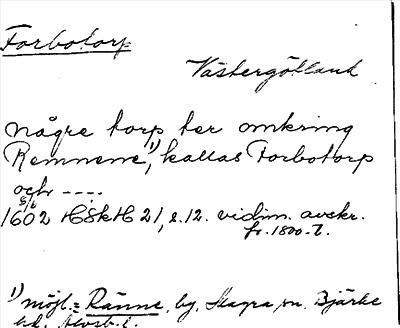 Forbotorp
Västergötland
någre torp ter omkring
Remnene¹⁾, kallas Forbotorp
ochr ----.
5/6
1602 HSkH 21, s. 12. vidim. avskr.
fr. 1800-t.
¹⁾ möjl. = Ränne, by, Skagra sn. Bjärke
hd. Älvsb. l.